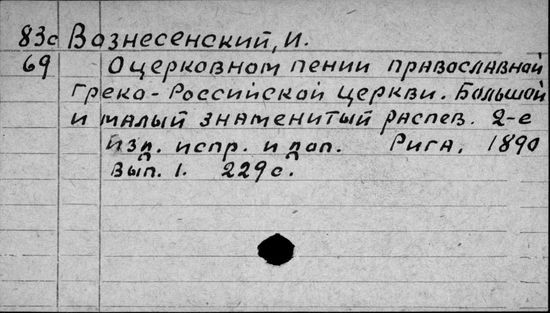 83с Вознесенский, И.
69 О церковном пении православной
Греко-Российской церкви. Большой
и малый знаменитый распев. 2-е
изд. испр. и доп. Рига, 1890
Вып. 1. 229 с.